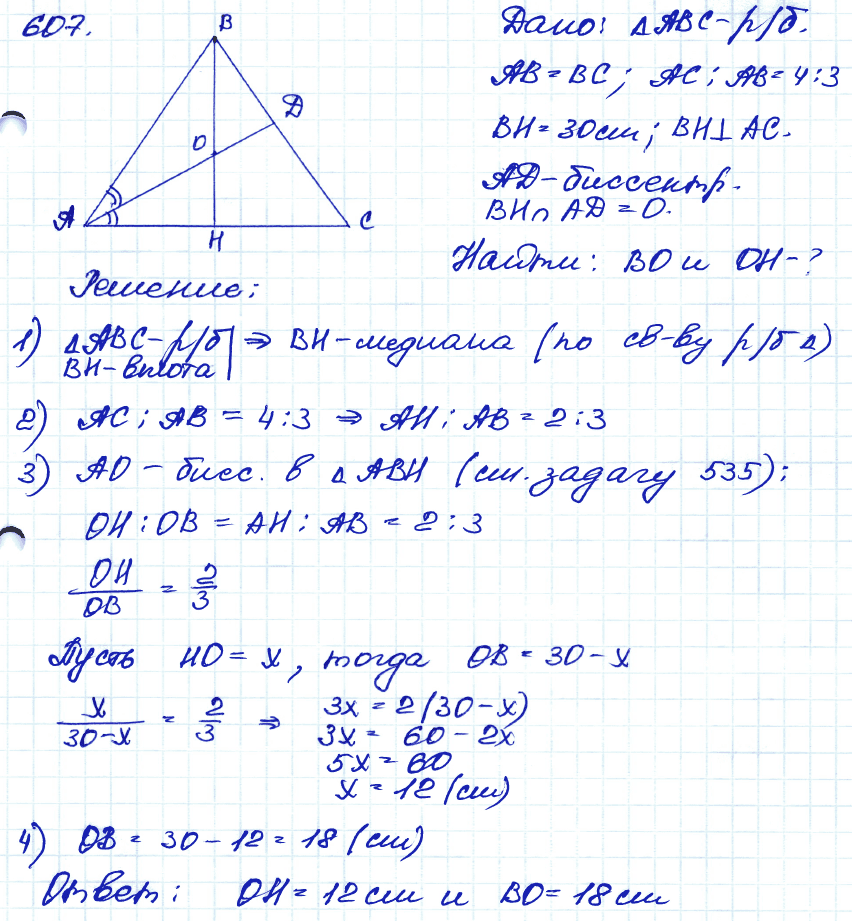 607.
B
D
O
A
H
C
Дано: △ABC - р/б.
AB = BC; AC : AB = 4 : 3
BH = 30 см; BH ⊥ AC.
AD - биссектр.
BH ∩ AD = O.
Найти: BO и OH - ?
Решение:
1) △ABC - р/б | ⇒ BH - медиана (по св-ву р/б △)
BH - высота
2) AC : AB = 4 : 3 ⇒ AH : AB = 2 : 3
3) AO - бисс. в △ABH (см. задачу 535):
OH : OB = AH : AB = 2 : 3
OH/OB = 2/3
Пусть HO = x, тогда OB = 30 - x
x/(30-x) = 2/3 ⇒ 3x = 2(30-x)
3x = 60 - 2x
5x = 60
x = 12 (см)
4) OB = 30 - 12 = 18 (см)
Ответ: OH = 12 см и BO = 18 см